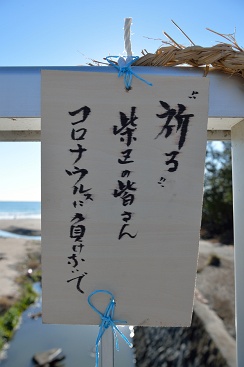 〝祈る〟
の皆さん
コロナウルスに負けないで